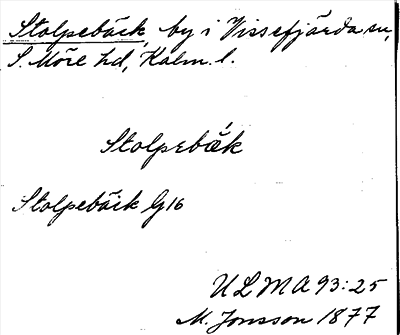 Stolpebäck, by i Vissefjärda sn,
S. Möre hd, Kalm. l.
Stolpebæ̀k
Stolpebäck G16
ULMA 93:25
M. Jonsson 1877